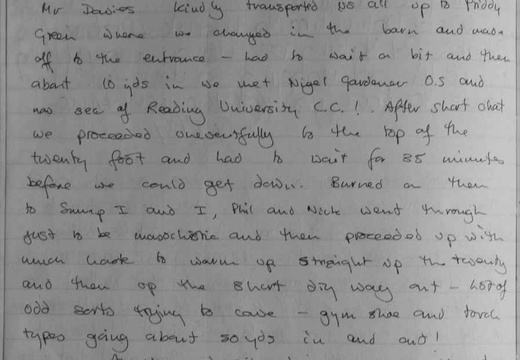 Mr Davies kindly transported us all up to Priddy
Green where we changed in the barn and made
off to the entrance - had to wait a bit and then
about 10 yds in we met Nigel Gardener O.S and
now sec of Reading University C.C.! After short chat
we proceeded uneventfully to the top of the
twenty foot and had to wait for 35 minutes
before we could get down. Burned on then
to Sump I and I, Phil and Nick went through
just to be masochistic and then proceeded up with
much haste to warm up straight up the twenty
and then up the short dry way out - lots of
odd sorts trying to cave - gym shoe and torch
types going about 50 yds in and out!